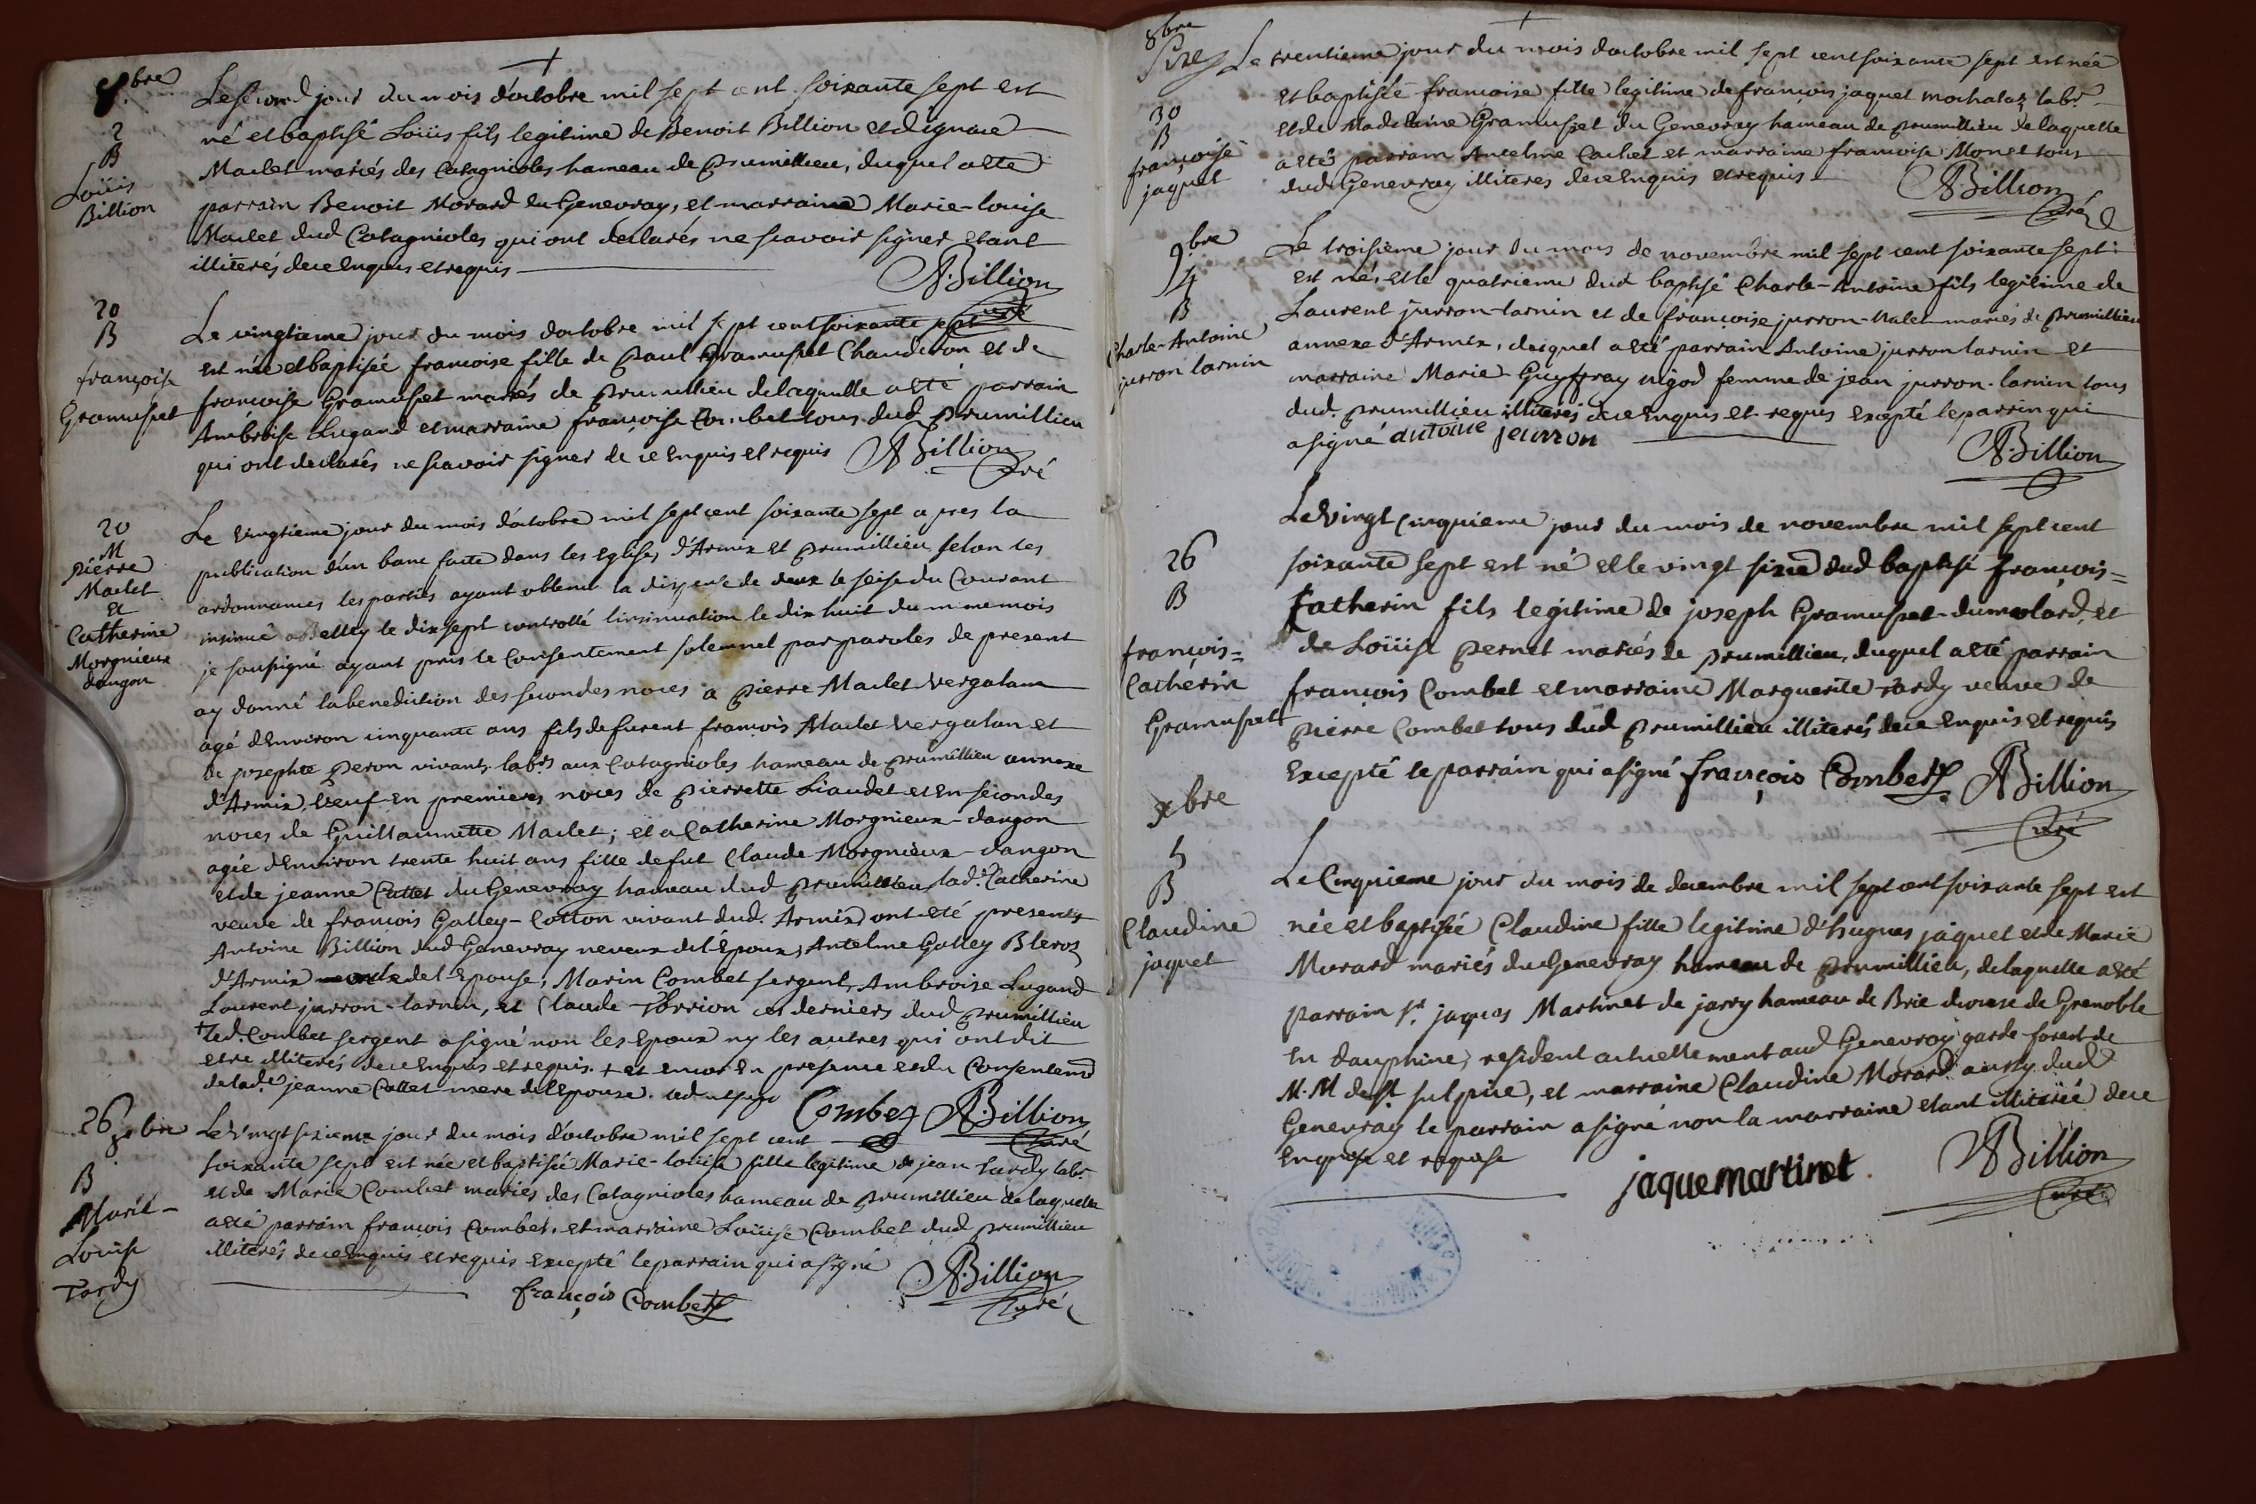 8.bre
2
B
Loüis
Billion
Le second jour du mois doctobre mil sept cent soixante sept est
né et baptisé Loüis fils legitime de Benoit Billion et
Maclet mariés des Catagnioles hameau de prumillieu, duquel a eté
parrain Benoit Morard du Genevray, et marraine Marie-louise
Maclet dud Catagnioles qui ont declarés ne scavoir signer etant
illiterés de ce Enquis et requis
A.Billion
Curé
20
B
françoise
Gramusset
Le vingtieme jour du mois doctobre mil sept cent soixante sept
est née et baptisée françoise fille de paul Gramusset Chauderon et de
francoise Gramusset mariés de prumillieu de laquelle a eté parrain
Ambroise Lugand et marraine françoise Combet tous dud prumillieu
qui ont declarés ne scavoir signer de ce Enquis et requis ABillion
Curé
20
M
pierre
Maclet
et
Catherine
Morgnieux
dangon
Le vingtieme jour du mois doctobre mil sept cent soixante sept apres la
publication d'un banc faite dans les Eglises d'Armix et prumillieu selon les
ordonnances les parties ayant obtenu la dispense de deux le seise du Courant
insinué a Belley le dix sept controllé linsinuation le dix huit du m me mois
je soussigné ayant pris le Consentement solemnel par paroles de present
ay donné la benediction des secondes noces a pierre Maclet vergalan
agé dEnviron cinquante ans fils de furent francois Maclet vergalan et
de josephte peron vivants labrs aux Catagnioles hameau de prumillieu annexe
d'Armix, veuf en premieres noces de pierrette Liaudet et En secondes
noces de Guillaumette Maclet; et a Catherine Morgnieux-dangon
agée dEnviron trente huit ans fille de fut Claude Morgnieux-dangon
et de jeanne Cattet du Genevray hameau dud prumillieu lad.e Catherine
veuve de françois Galley-Cotton vivant dud. Armix ont eté presents
Antoine Billion dud Genevray neveux de l'Epoux, Antelme Galley Bleroz
d'Armix de l'Epouse, Marin Combet sergent, Ambroise Lugand
Laurent jurron-larnin, et Claude ces derniers dud prumillieu
+ led. Combet sergent a signé non les Epoux ny les autres qui ont dit
etre illiterés de ce Enquis et requis. + et encor En presence et du Consentemt
de lad.e jeanne Cattet mere de l'Epouse.
Combet ABillion
Curé
26 8bre
B
Marie-
Louise
Tardy
Le vingt sixieme jour du mois d'octobre mil sept cent
soixante sept est née et baptisée Marie-louise fille legitime de jean tardy labr
et de Marie Combet mariés des Catagnioles hameau de prumillieu de laquelle
a eté parrain françois Combet, et marraine Loüise Combet dud prumillieu
illiterés de ce Enquis et requis Excepté le parrain qui a signé
françois Combet
A.Billion
Curé
8bre
30
B
françoise
jaquet
Le trentieme jour du mois doctobre mil sept cent soixante sept est née
et baptisée françoise fille legitime de francois jaquet mochataz labr
et de Madelaine Gramusset du Genevray hameau de prumillieu de laquelle
a eté parrain Antelme Cachet et marraine francoise Monet tous
dud. Genevray illiteres de ce Enquis et requis
ABillion
Curé
9.bre
4
B
Charle-Antoine
jurron larnin
Le troisieme jour du mois de novembre mil sept cent soixante sept
est né, et le quatrieme dud baptisé Charle-Antoine fils legitime de
Laurent jurron-larnin et de françoise jurron-valet mariés de prumillieu
annexe d'Armix, duquel a eté parrain Antoine jurron larnin et
marraine Marie Guyffray nigod femme de jean jurron-larnin tous
dud. prumillieu illiterés de ce Enquis et requis Excepté le parrin qui
a signé antoine jeurron
A.Billion
26
B
françois=
Catherin
Gramusset
Le vingt cinquieme jour du mois de novembre mil sept cent
soixante sept est né et le vingt sixie dud baptisé françois=
Catherin fils legitime de joseph Gramusset-dumolard, et
de Loüise pernet mariés de prumillieu, duquel a eté parrain
françois Combet et marraine Marguerite tardy veuve de
pierre Combet tous dud prumillieu illiterés de ce Enquis et requis
Excepté le parrain qui a signé françois Combet ABillion
Curé
xbre
5
B
Claudine
jaquet
Le Cinquieme jour du mois de decembre mil sept cent soixante sept est
née et baptisée Claudine fille legitime d'hugues jaquet et de Marie
Morard mariés du Genevray hameau de prumillieu, de laquelle a eté
parrain sr. jaques Martinet de jarry hameau de Brie diocese de Grenoble
en dauphiné, resident actuellement aud Genevray garde-forest de
M.M de st sulpice, et marraine Claudine Morard aussy dud
Genevray le parrain a signé non la marraine etant illiterée de ce
Enquise et requise
jaque martinet.
ABillion
Curé